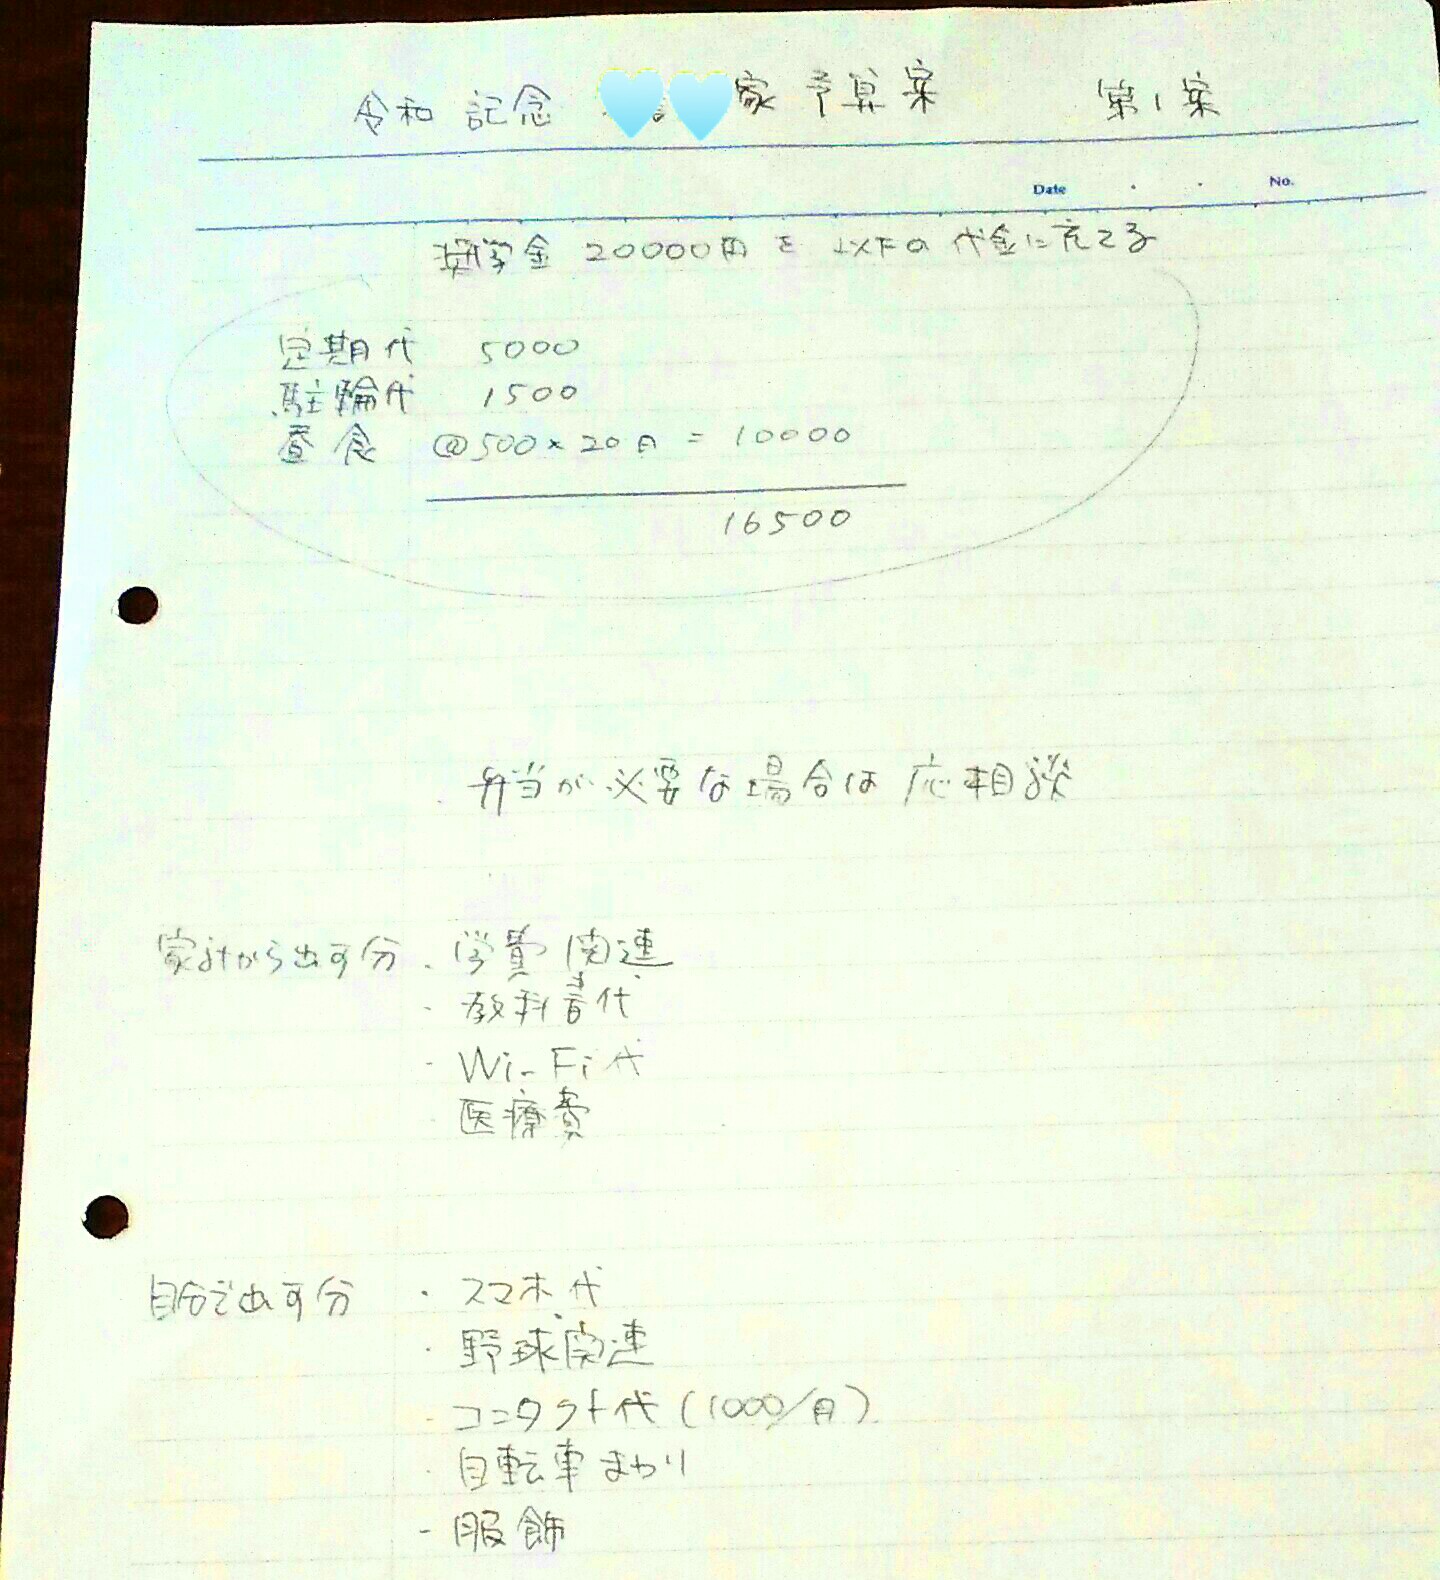 令和 記念 家 予算案 第1案
Date . . No.
奨学金 20000円を 以下の 代金に充てる
定期代 5000
駐輪代 1500
昼食 @500×20日 = 10000
16500
弁当が必要な場合は 応相談
家計から出す分 ・学費関連
・教科書代
・Wi-Fi代
・医療費
自分で出す分 ・スマホ代
・野球関連
・コンタクト代 (1000/月)
・自転車まわり
・服飾